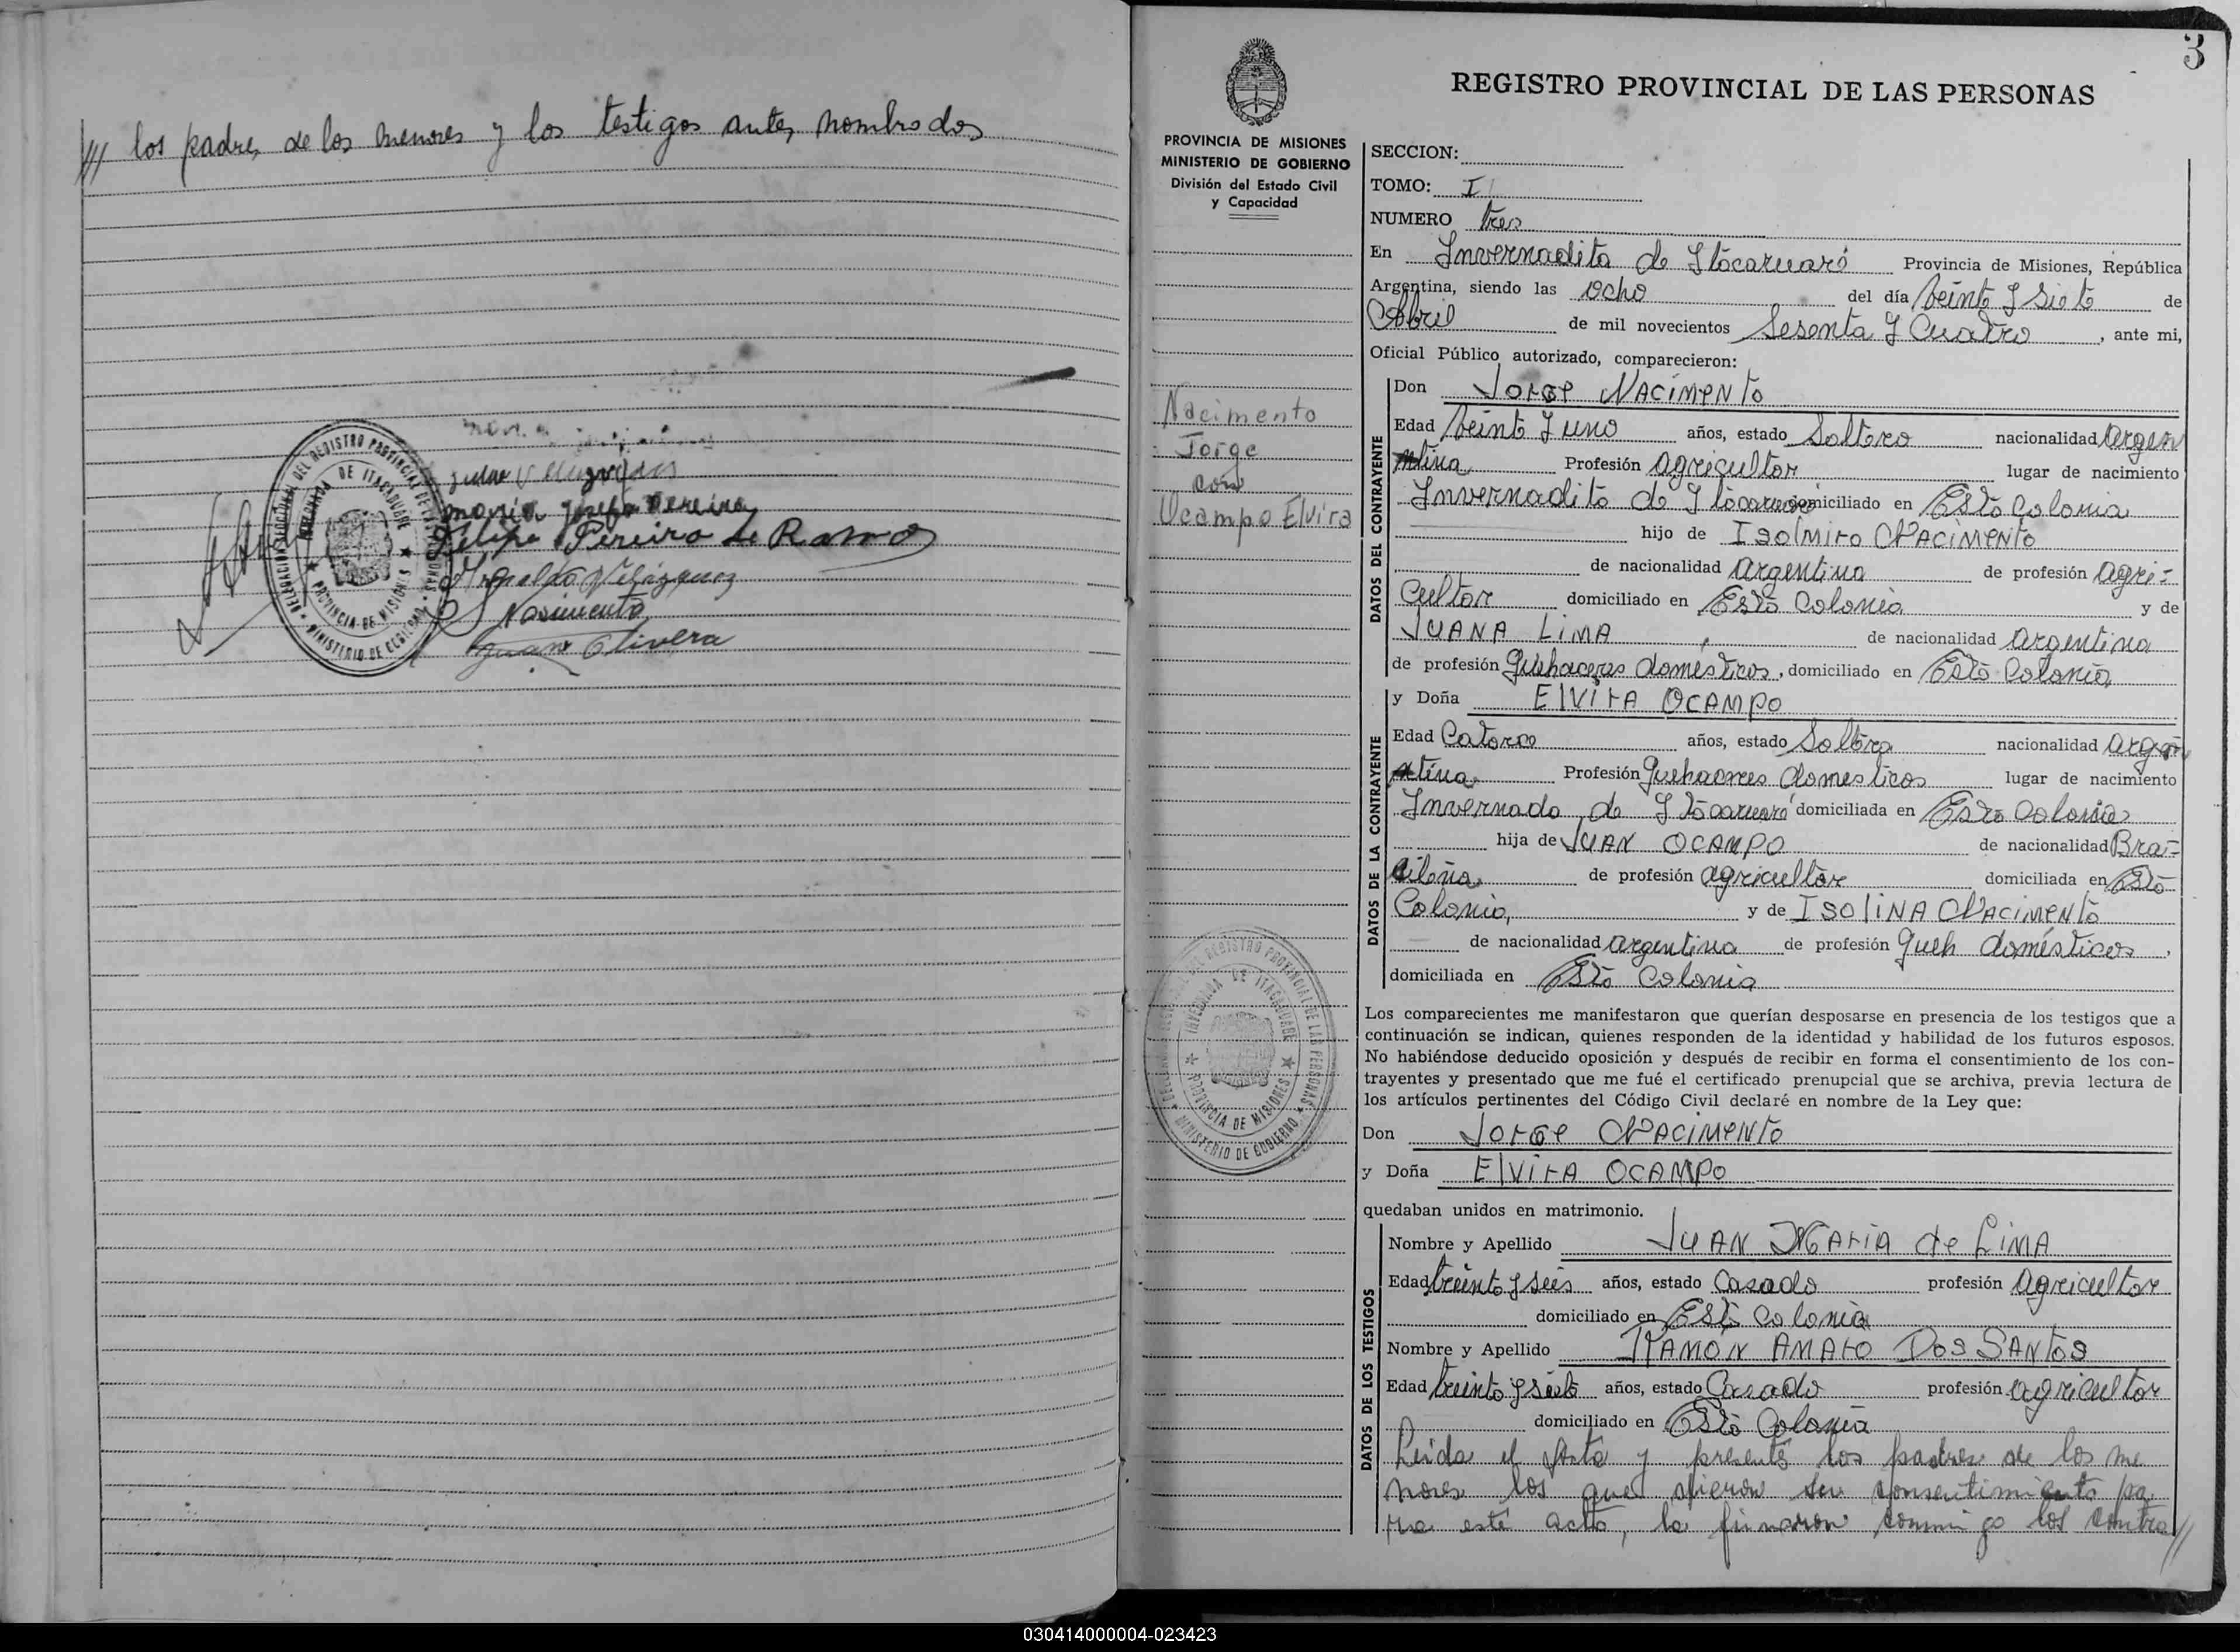 /// los padres de los menores y los testigos antes nombrados
maria josefa Pereira
Felipe Pereira de Ramos
Velázquez
Nasimento
Juan Olivera
DELEGACION SECCIONAL DEL REGISTRO PROVINCIAL DE LAS PERSONAS
INVERNADA DE ITACARUARE
PROVINCIA DE MISIONES
MINISTERIO DE GOBIERNO
3
PROVINCIA DE MISIONES
MINISTERIO DE GOBIERNO
División del Estado Civil
y Capacidad
Nacimento
Jorge
con
Ocampo Elvira
INVERNADA DE ITACARUARE
PROVINCIA DE MISIONES
MINISTERIO DE GOBIERNO
REGISTRO PROVINCIAL DE LAS PERSONAS
SECCION:
TOMO: I
NUMERO tres
En Invernadita de Itacaruaré Provincia de Misiones, República
Argentina, siendo las ocho del día veinte y siete de
Abril de mil novecientos Sesenta y Cuatro, ante mi,
Oficial Público autorizado, comparecieron:
DATOS DEL CONTRAYENTE
Don Jorge Nacimento
Edad veinte y uno años, estado Soltero nacionalidad Argen
tina Profesión agricultor lugar de nacimiento
Invernadita de Itacaruaré domiciliado en Esta Colonia
hijo de Isolmiro Nacimento
de nacionalidad argentina de profesión agri-
cultor domiciliado en Esta Colonia y de
JUANA LIMA de nacionalidad argentina
de profesión Quehaceres domésticos, domiciliado en Esta Colonia
DATOS DE LA CONTRAYENTE
y Doña Elvira OCAMPO
Edad Catorce años, estado Soltera nacionalidad argen
tina Profesión Quehaceres domesticos lugar de nacimiento
Invernada de Itacaruaré domiciliada en Esta Colonia
hija de JUAN OCAMPO de nacionalidad Bra-
sileña de profesión agricultor domiciliada en Esta
Colonia, y de ISOLINA Nacimento
de nacionalidad argentina de profesión Queh domésticos,
domiciliada en Esta Colonia
Los comparecientes me manifestaron que querían desposarse en presencia de los testigos que a
continuación se indican, quienes responden de la identidad y habilidad de los futuros esposos.
No habiéndose deducido oposición y después de recibir en forma el consentimiento de los con-
trayentes y presentado que me fué el certificado prenupcial que se archiva, previa lectura de
los artículos pertinentes del Código Civil declaré en nombre de la Ley que:
Don Jorge Nacimento
y Doña Elvira OCAMPO
quedaban unidos en matrimonio.
DATOS DE LOS TESTIGOS
Nombre y Apellido JUAN MARIA de LIMA
Edad treinta y seis años, estado Casado profesión agricultor
domiciliado en Esta Colonia
Nombre y Apellido RAMÓN AMARO DOS SANTOS
Edad treinta y siete años, estado Casado profesión agricultor
domiciliado en Esta Colonia
Leida el Acta y presente los padres de los me
nores los que dieron su consentimiento pa
ra este acto, la firmaron conmigo los contra//
030414000004-023423